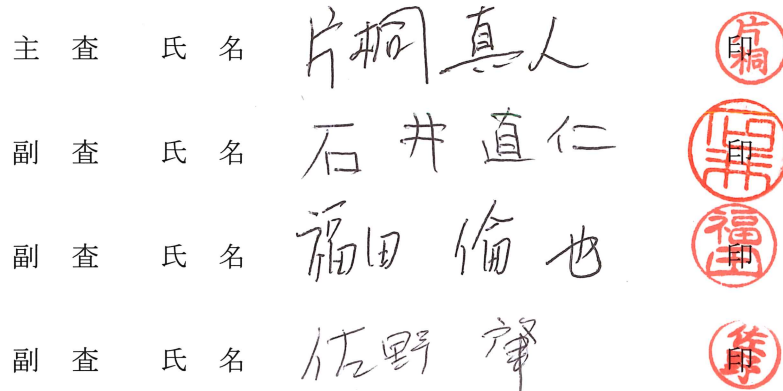 主査 氏名 片桐真人 印 片桐
副査 氏名 石井直仁 印 石井
副査 氏名 福田倫也 印 福田
副査 氏名 佐野肇 印 佐野